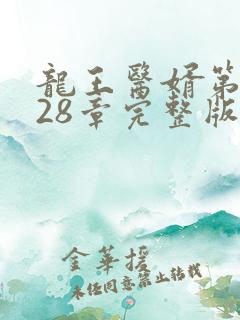 龍王醫婿第
28章完整版
金華援
未經同意禁止轉載